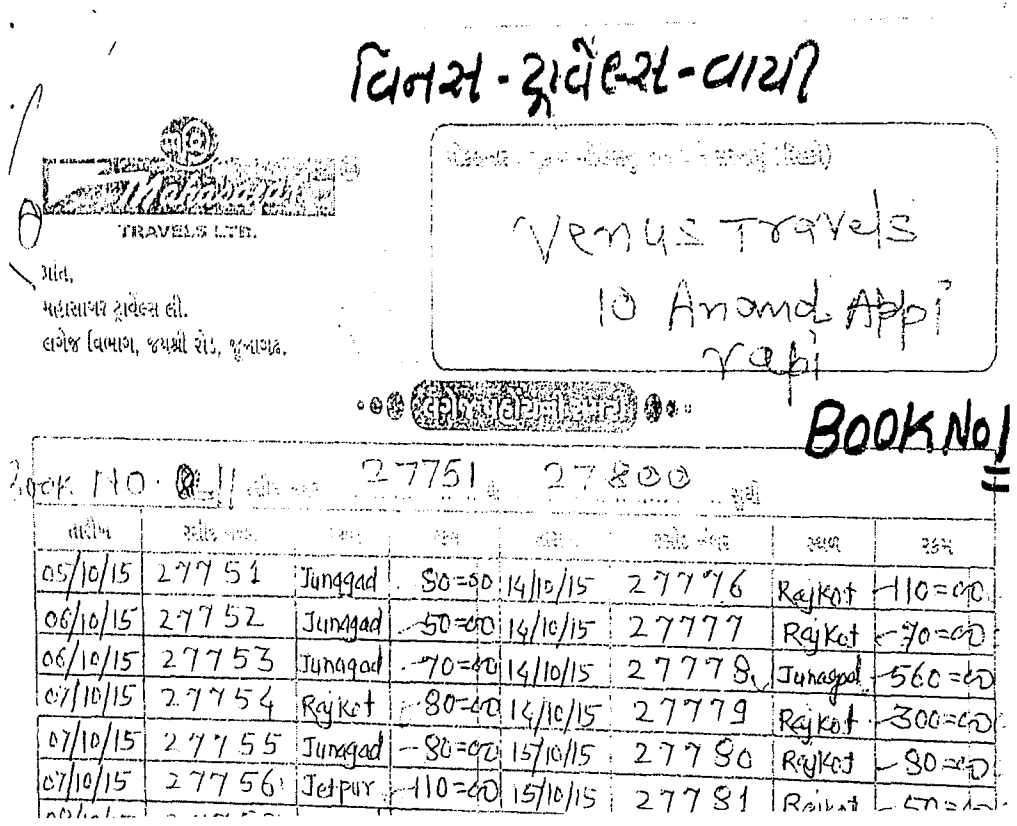 વિનસ - ટ્રાવેલ્સ - વાપી
Mahasagar
TRAVELS LTD.
પ્રતિ,
મહાસાગર ટ્રાવેલ્સ લી.
લગેજ વિભાગ, જયશ્રી રોડ, જૂનાગઢ.
Venus Travels
10 Anand Appt
Vapi
BOOK No 1
Book NO. 27751 27800 સુધી
તારીખ રસીદ સ્થળ રકમ
05/10/15 27751 Junagad 80=00 14/10/15 27776 Rajkot -110=00
06/10/15 27752 Junagad -50=00 14/10/15 27777 Rajkot -70=00
06/10/15 27753 Junagad -70=00 14/10/15 27778 Junagad -560=00
07/10/15 27754 Rajkot -80=00 14/10/15 27779 Rajkot -300=00
07/10/15 27755 Junagad -80=00 15/10/15 27780 Rajkot -80=00
07/10/15 27756 Jetpur -110=00 15/10/15 27781 Rajkot -50=00